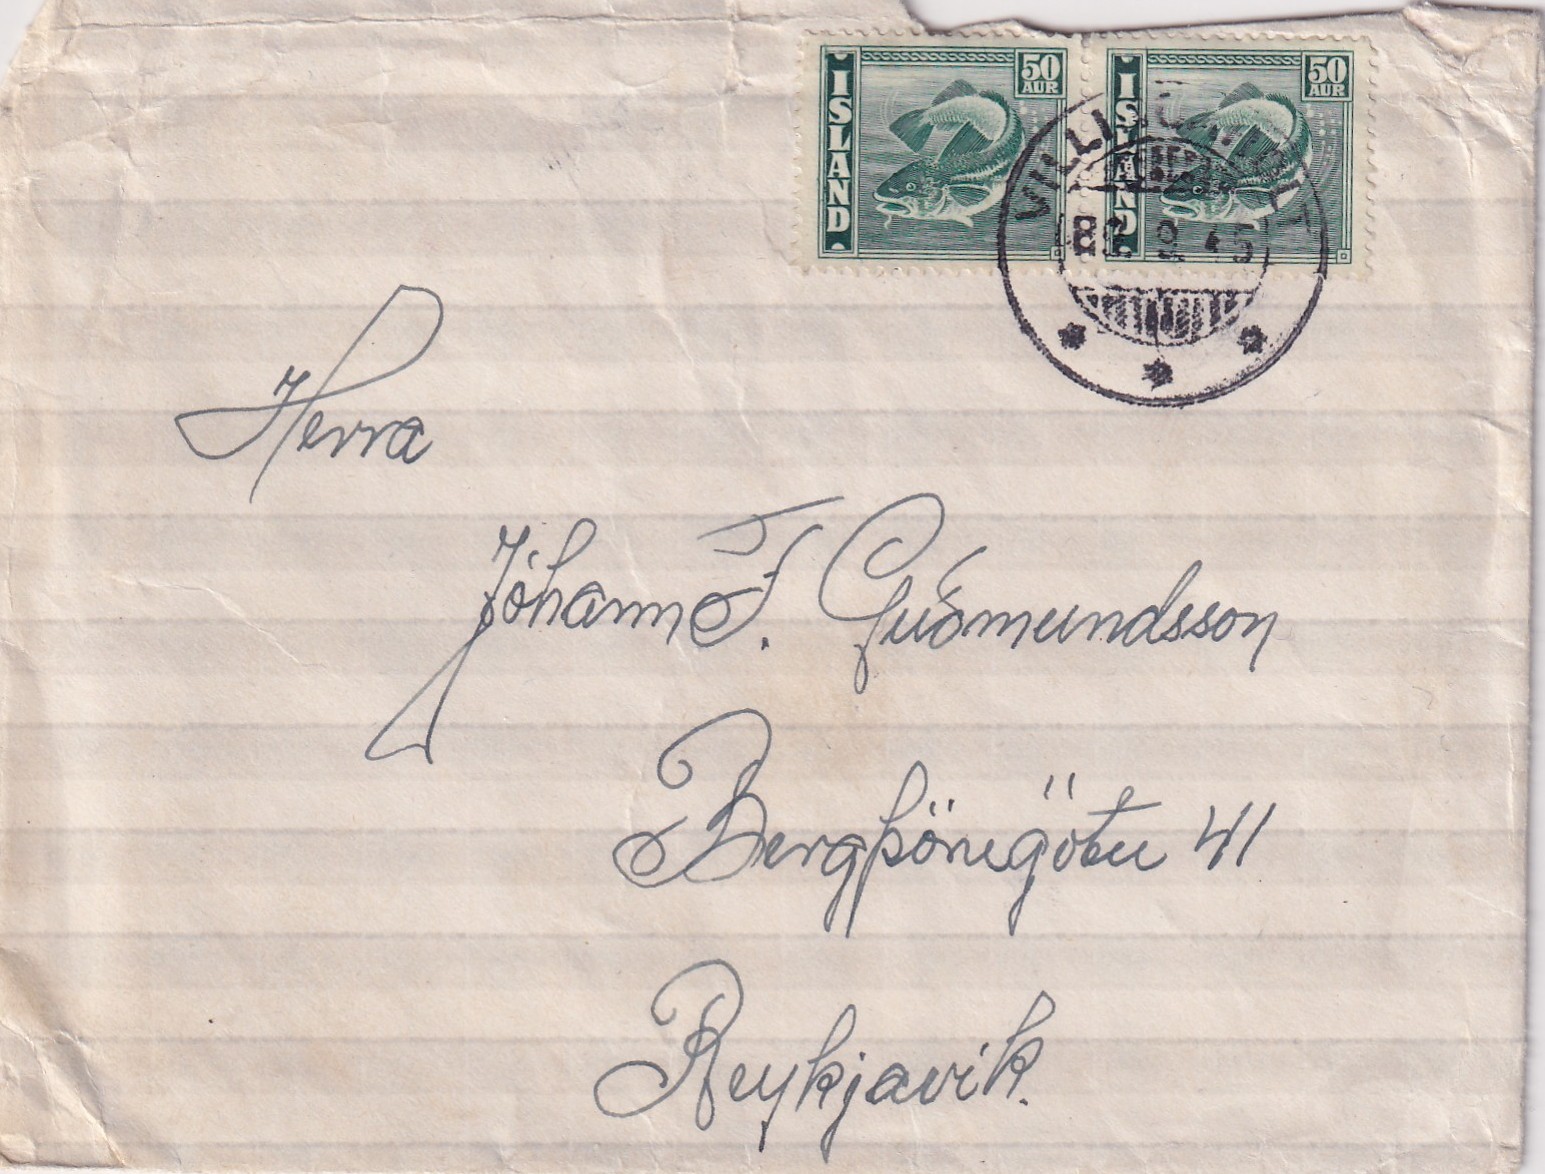 ÍSLAND 50 AUR ÍSLAND 50 AUR
Herra
Jóhann F. Guðmundsson
Bergþórugötu 41
Reykjavík.